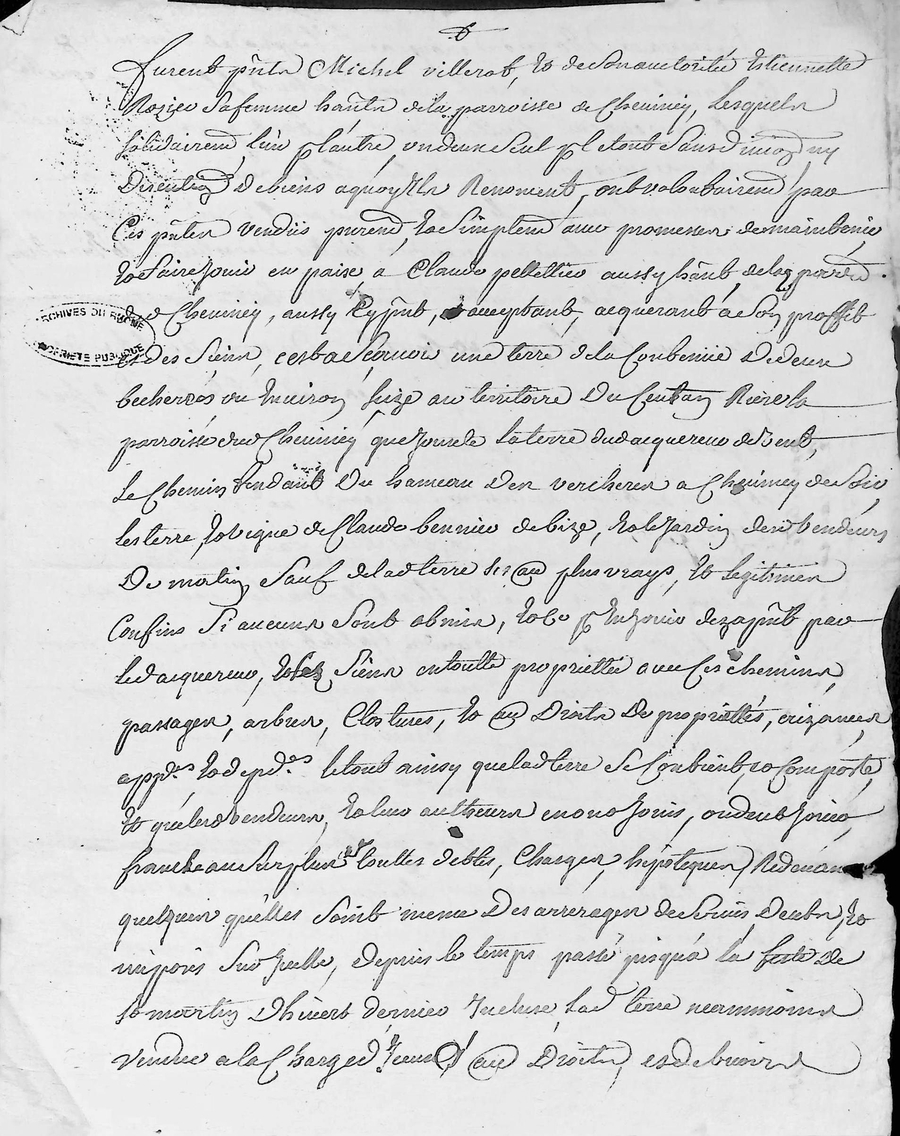 furent pnts Michel villerot, et de son autoritée Etiennette
Rozier sa femme habts de la parroisse de Cheviney, lesquels
solidairemt l'un pr l'autre, un deux seul pr le tout sans division ny
discution de biens a quoy ils Renoncent, ont volontairemt par
Ces pntes vendus puremt, et simplemt avec promesses de maintenir,
et faire Jouir en paise a Claude pelletier aussy habt de lad parroisse
de Cheviney, aussy Cy pnt, et acceptant, acquerant a son proffit
ARCHIVES DU RHONE
PROPRIETE PUBLIQUE
et des siens, cest a scavoir une terre de la Contenue de deux
becherées ou Environ, size au territoire du Rière la
parroisse de Cheviney que Jouxte la terre dud acquereur de vent,
Le Chemin tendant du hameau des vercheres a Cheviney de soir
les terre, et vigne de Claude bennier de bize, et le Jardin des vendeurs
De matin, sauf de lad terre ses au plus vrays, et legitimes
Confins si aucuns sont obmis, et ce pr En Jouir dez apnt par
led acquereur, et les siens en toutte proprietée avec ses chemins,
passages, arbres, Clostures, et au Droits De proprietés, aizances,
appces, et depdces le tout ainsy que lad terre se Contient, et Comporte,
et que lesd vendeurs, et leur autheurs en ont Jouis, ou deub Jouir,
franche au surplus de touttes debtes, Charges, hipoteques, Redevances
quelquun quelles soint meme des arrerages de servis, deubs, et
imposés sur Icelle, depuis le temps passé jusqu'a la feste de
st martin Dhivert dernier Incluse, lad terre neanmoins
vendue a la Charge d au Droits, et debvoirs